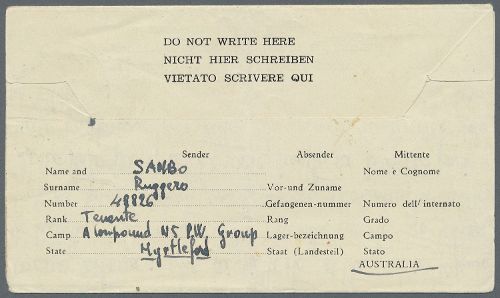 DO NOT WRITE HERE
NICHT HIER SCHREIBEN
VIETATO SCRIVERE QUI
Sender Absender Mittente
Name and SANBO Nome e Cognome
Surname Ruggero Vor-und Zuname
Number 49826 Gefangenen-nummer Numero dell'internato
Rank Tenente Rang Grado
Camp A Compound N5 P.W. Group Lager-bezeichnung Campo
State Myrtleford Staat (Landesteil) Stato
AUSTRALIA